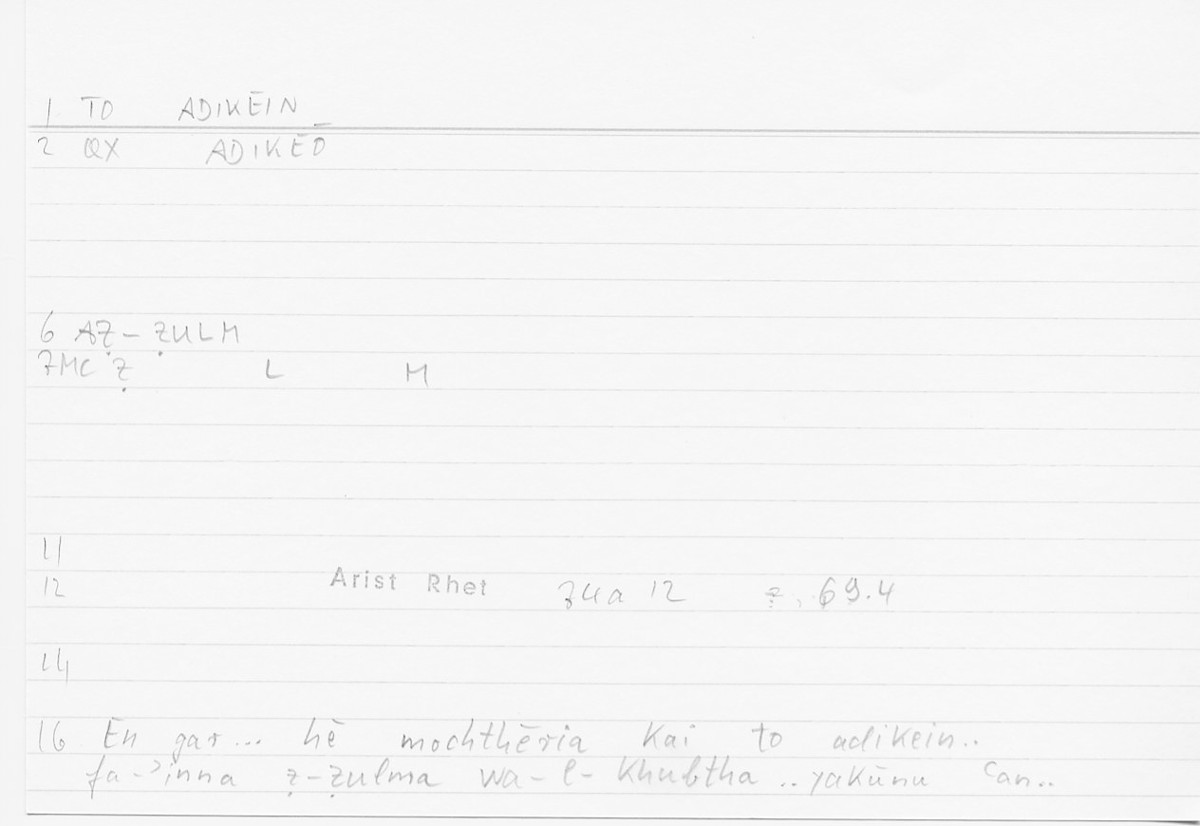 1 TO ADIKĒIN
2 QX ADIKĒŌ
6 AẒ-ẒULM
7MC Ẓ L M
11
12 Arist Rhet 74a 12 69.4
14
16 En gar... hē mochthēria kai to adikein..
fa-ʾinna ẓ-ẓulma wa-l-khubtha ..yakūnu ʿan..